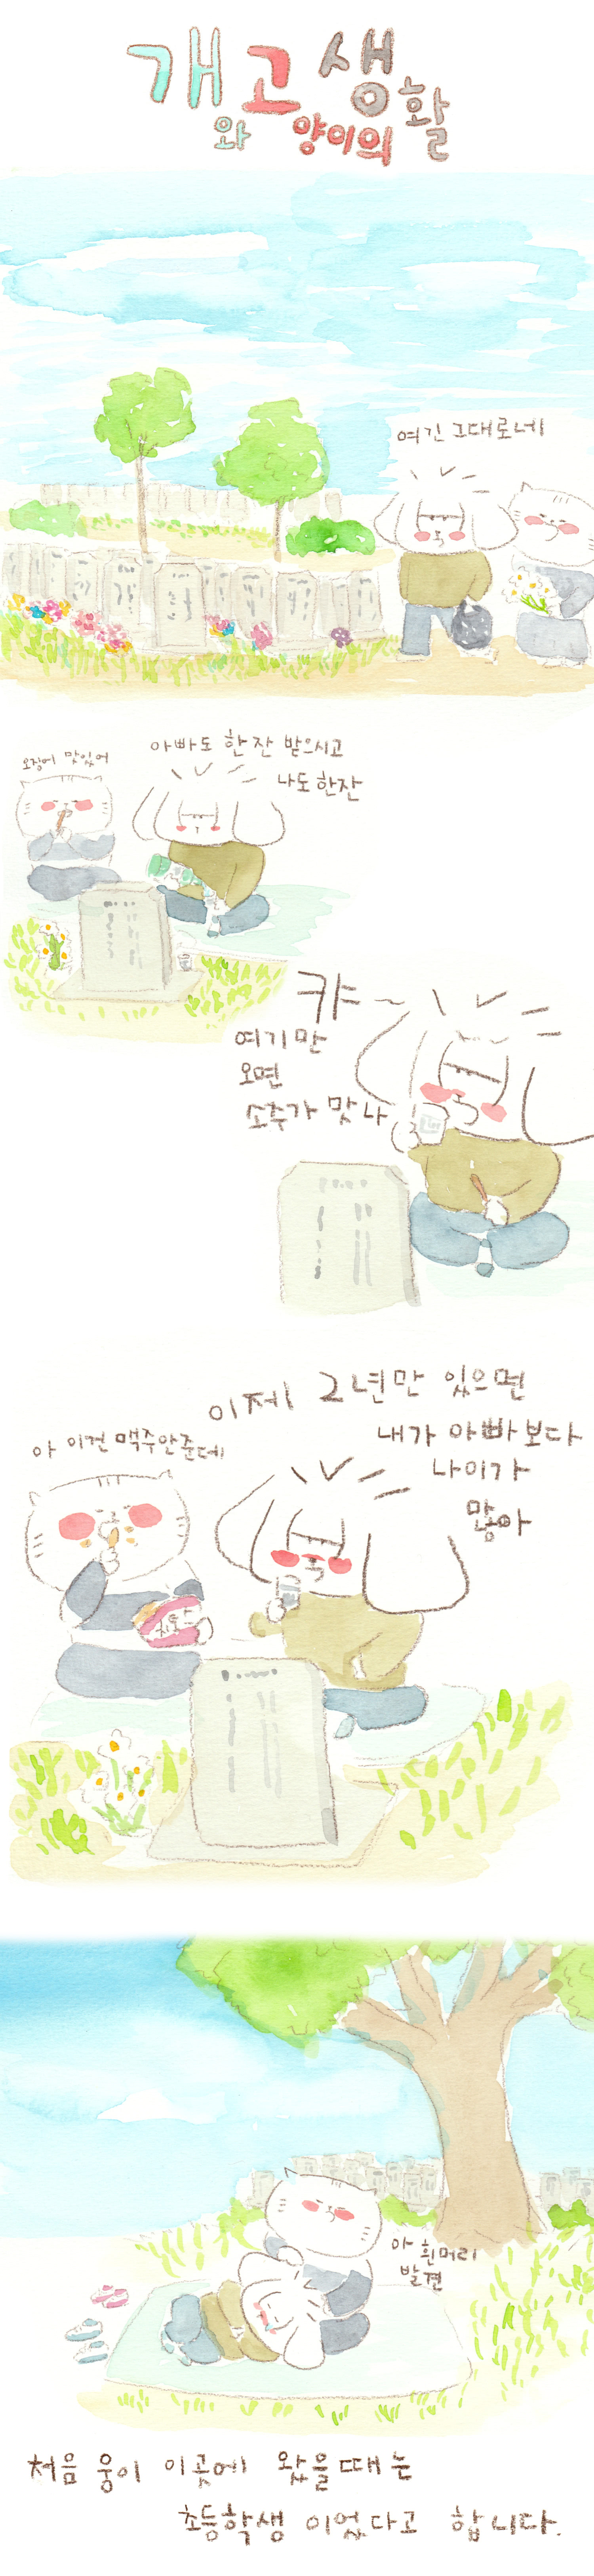 개고생활
와 양이의
여긴 그대로네
오징어 맛있어
아빠도 한잔 받으시고
나도 한잔
캬~
여기만
오면
소주가 맛나
이제 2년만 있으면
내가 아빠보다
나이가
많아
아 이건 맥주안준데
아 흰머리
발견
처음 웅이 이곳에 왔을때는
초등학생 이었다고 합니다.